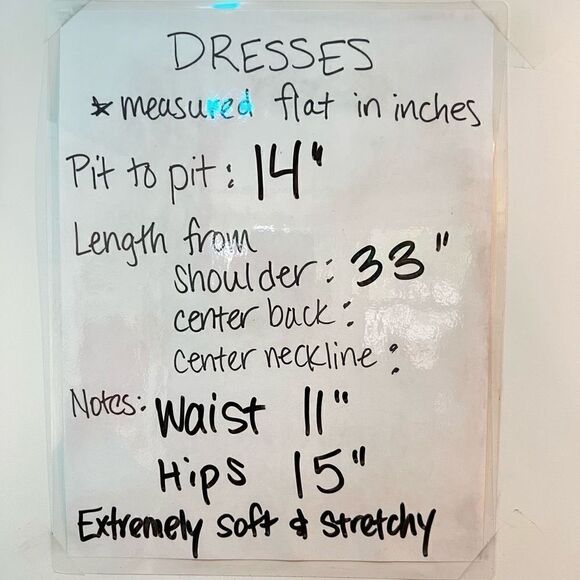 DRESSES
* measured flat in inches
Pit to pit: 14"
Length from
shoulder: 33"
center back:
center neckline:
Notes: Waist 11"
Hips 15"
Extremely soft & stretchy